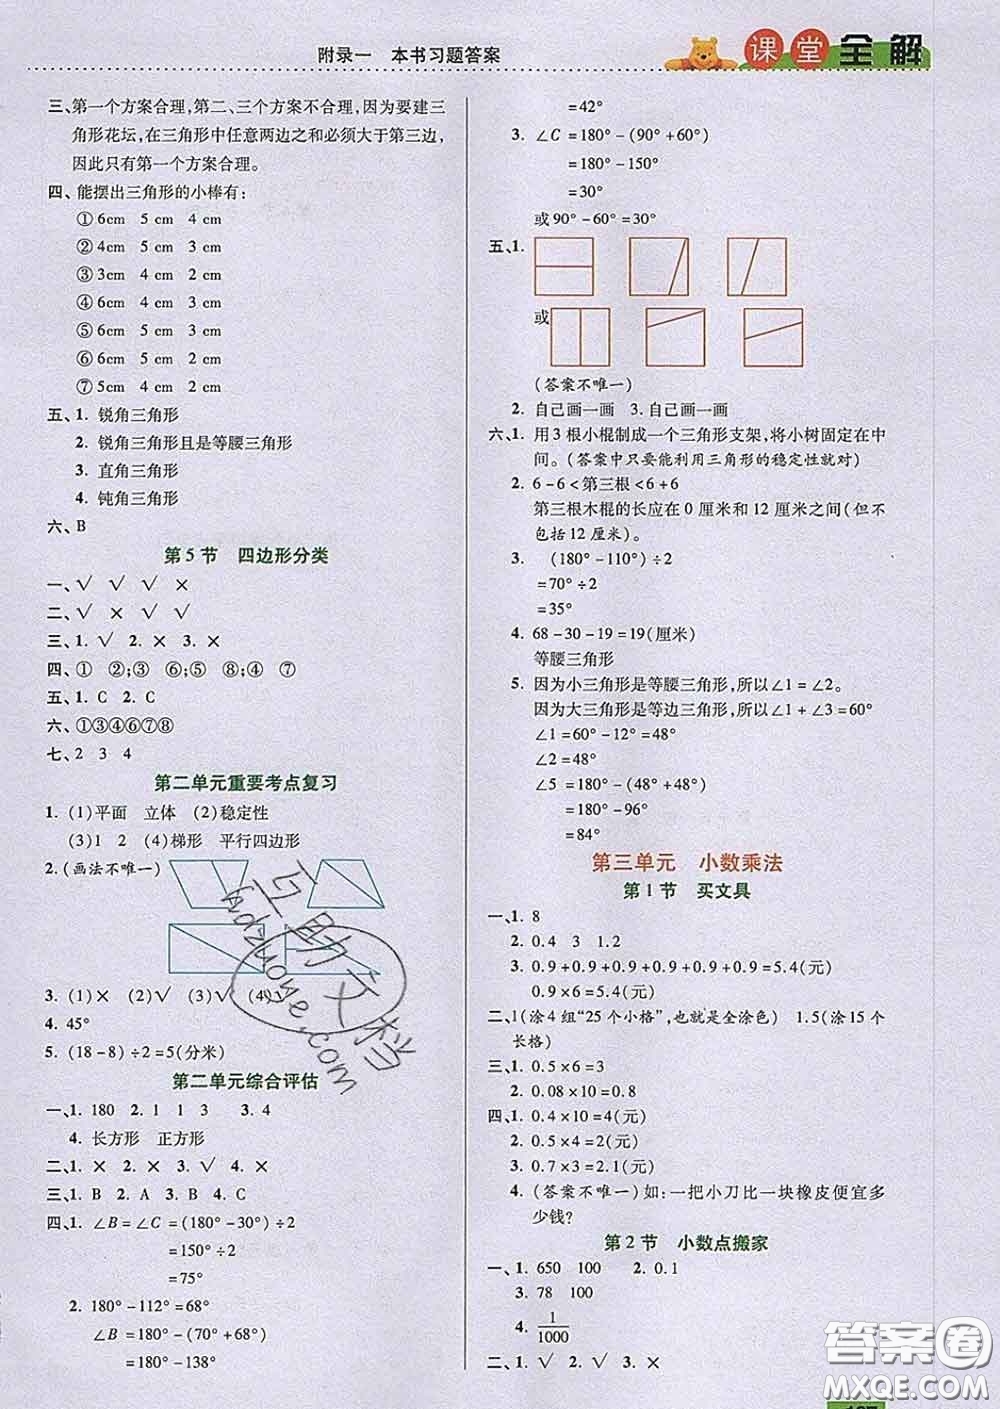 附录一　本书习题答案
课堂全解
三、第一个方案合理,第二、三个方案不合理,因为要建三
角形花坛,在三角形中任意两边之和必须大于第三边,
因此只有第一个方案合理。
四、能摆出三角形的小棒有:
① 6cm 5 cm 4 cm
② 4cm 5 cm 3 cm
③ 3cm 4 cm 2 cm
④ 6cm 5 cm 3 cm
⑤ 6cm 5 cm 2 cm
⑥ 6cm 4 cm 3 cm
⑦ 5cm 4 cm 2 cm
五、1. 锐角三角形
2. 锐角三角形且是等腰三角形
3. 直角三角形
4. 钝角三角形
六、B
第 5 节　四边形分类
一、√ √ √ ×
二、√ × √ √
三、1. √ 2. × 3. ×
四、① ②;③ ④;⑥ ⑤;⑧ ⑥ ⑦
五、1. C 2. C
六、①③④⑥⑦⑧
七、2 3 4
第二单元重要考点复习
1. (1)平面　立体　(2)稳定性
(3)1 2 (4)梯形　平行四边形
2. (画法不唯一)
3. (1)× (2)√ (3)√ (4)√
4. 45°
5. (18-8)÷2=5(分米)
第二单元综合评估
一、1. 180 2. 1 1 3 3. 4
4. 长方形　正方形
二、1. × 2. × 3. √ 4. ×
三、1. B 2. A 3. B 4. C
四、1. ∠B=∠C=(180°-30°)÷2
=150°÷2
=75°
2. 180°-112°=68°
∠B=180°-(70°+68°)
=180°-138°
=42°
3. ∠C=180°-(90°+60°)
=180°-150°
=30°
或90°-60°=30°
五、1.
或
(答案不唯一)
2. 自己画一画 3. 自己画一画
六、1. 用3根小棍制成一个三角形支架,将小树固定在中
间。(答案中只要能利用三角形的稳定性就对)
2. 6-6<第三根<6+6
第三根木棍的长应在 0 厘米和 12 厘米之间(但不
包括 12 厘米)。
3. (180°-110°)÷2
=70°÷2
=35°
4. 68-30-19=19(厘米)
等腰三角形
5. 因为小三角形是等腰三角形,所以∠1=∠2。
因为大三角形是等边三角形,所以∠1+∠3=60°
∠1=60°-12°=48°
∠2=48°
∠5=180°-(48°+48°)
=180°-96°
=84°
第三单元　小数乘法
第 1 节　买文具
一、1. 8
2. 0.4 3 1.2
3. 0.9+0.9+0.9+0.9+0.9+0.9=5.4(元)
0.9×6=5.4(元)
二、1(涂4组“25个小格”,也就是全涂色)　1.5(涂15个
长格)
三、1. 0.5×6=3
2. 0.08×10=0.8
四、1. 0.4×10=4(元)
2. 0.5×4=2(元)
3. 0.7×3=2.1(元)
4. (答案不唯一)如:一把小刀比一块橡皮便宜多
少钱?
第 2 节　小数点搬家
一、1. 650 100 2. 0.1
3. 78 100
4. 1/1000
二、1. √ 2. √ 3. ×
互助文档
hdzuoye.com
答案圈
MXQE.COM